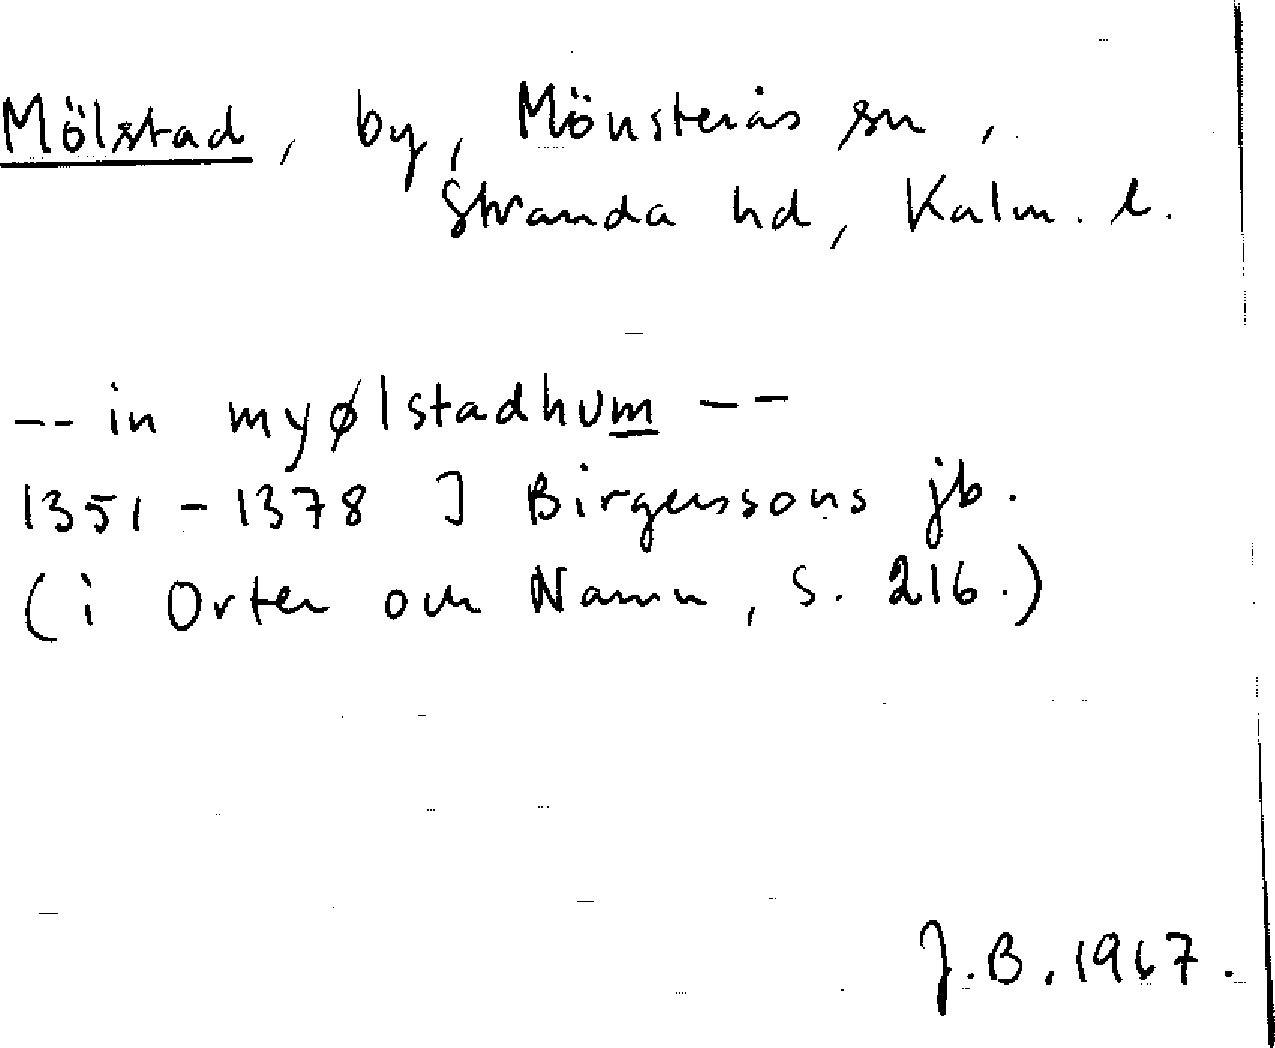 Mölstad, by, Mönsterås sn,
Stranda hd, Kalm. l.
-- in myølstadhum --
1351-1378 J Birgerssons jb.
(i Orter och Namn, S. 216.)
J.B. 1967.